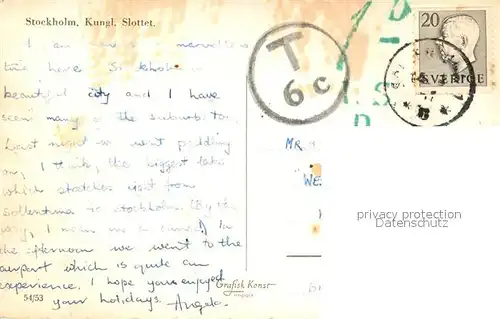 Stockholm. Kungl. Slottet.
I am having a marvellous
time here. Stockholm is a
beautiful city and I have
seen many of the suburbs too.
Last night we went paddling
on, I think, the biggest lake
which stretches right from
Sollentuna to Stockholm (By the
way, I mean in a canoe!) In
the afternoon we went to the
airport which is quite an
experience. I hope you enjoyed
your holidays. Angela.
54/53
Grafisk Konst
T
6 c
20
SVERIGE
MR.
WE
privacy protection
Datenschutz